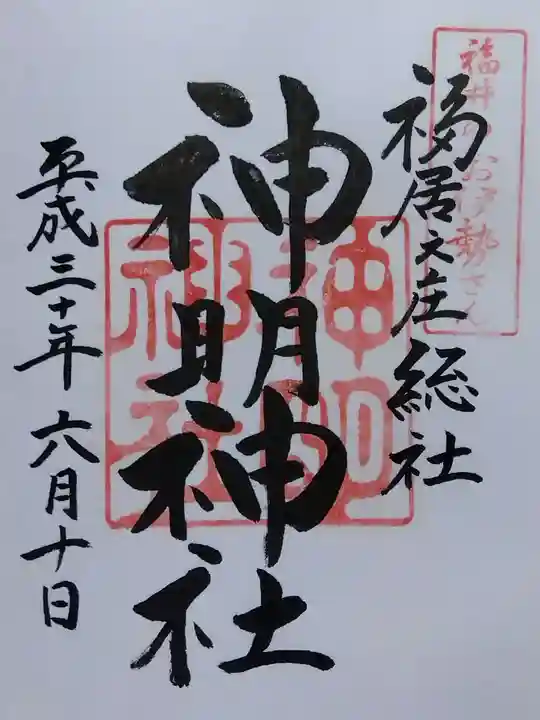 福井のお伊勢さん
福居之庄総社
神明神社
神明神社
平成三十年六月十日